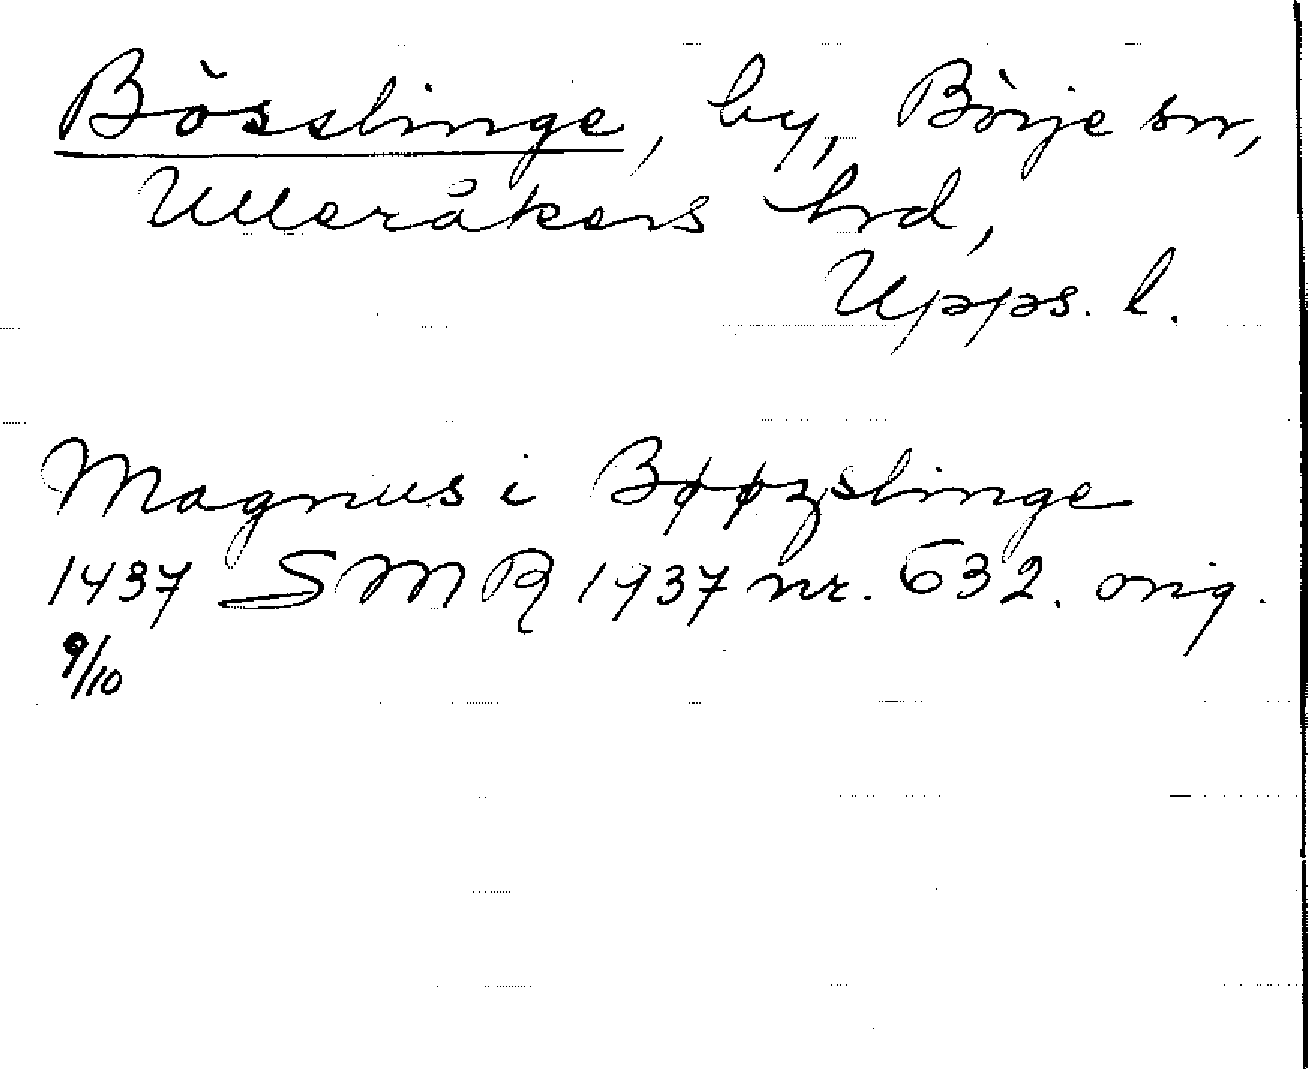 Bösslinge, by, Börje sn,
Ulleråkers hrd,
Upps. l.
Magnus i Bøøzslinge
1437 SMR 1937 nr. 632. orig.
9/10